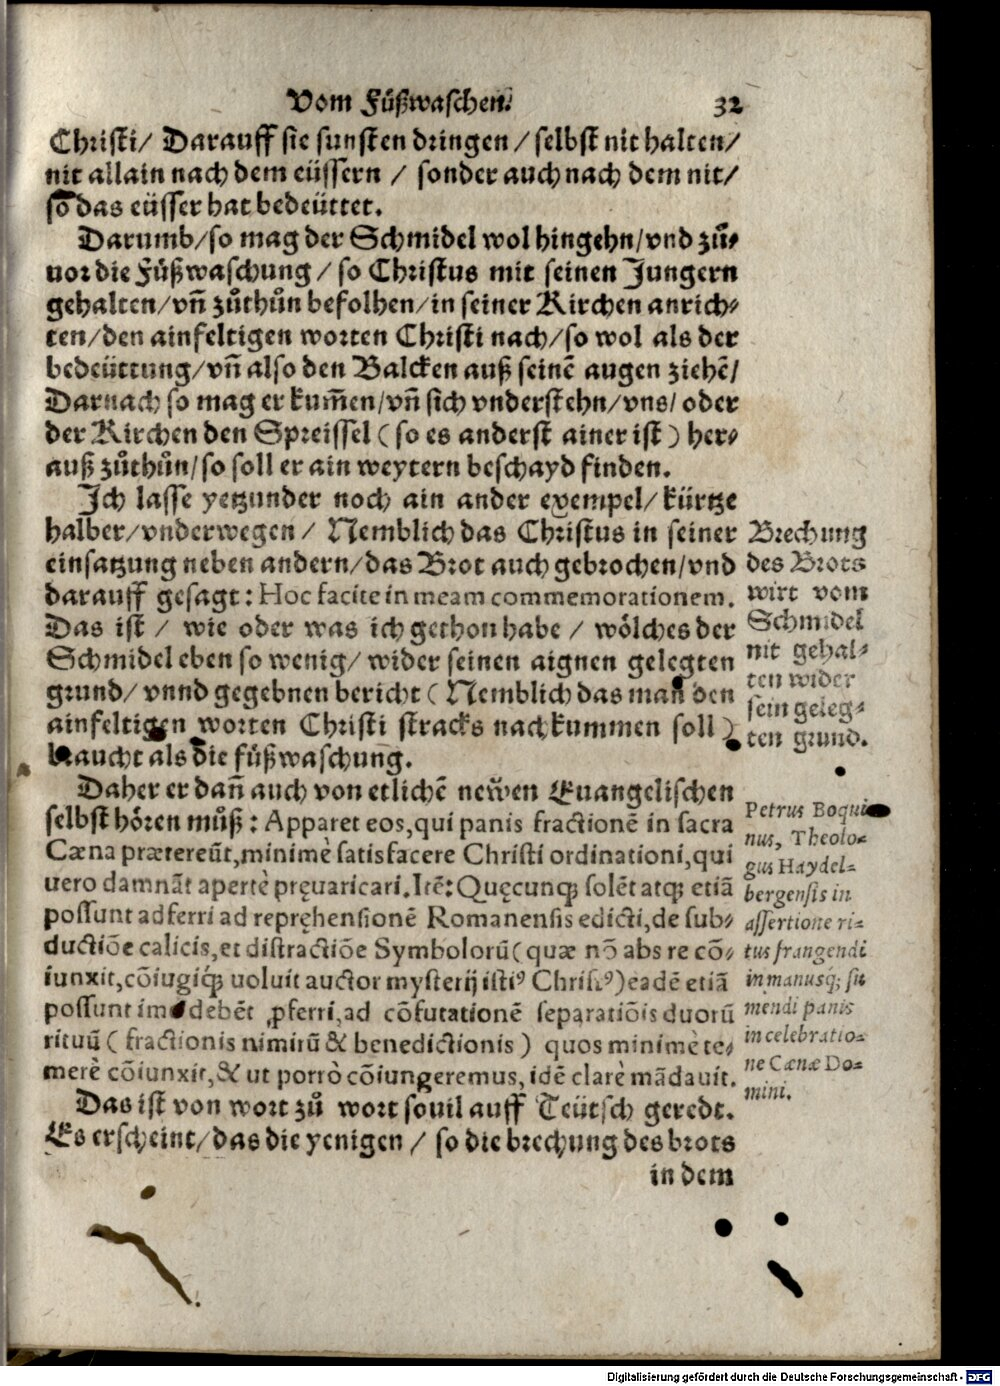 Vom Fůßwaschen. 32
Christi/ Darauff sie sunsten dringen / selbst nit halten/
nit allain nach dem eüssern / sonder auch nach dem nit/
so das eüsser hat bedeüttet.
Darumb/so mag der Schmidel wol hingehn/vnd zů-
uor die Fůßwaschung / so Christus mit seinen Jungern
gehalten/vñ zůthůn befolhen/in seiner Kirchen anrich-
ten/den ainfeltigen worten Christi nach/so wol als der
bedeüttung/vñ also den Balcken auß seinẽ augen ziehẽ/
Darnach so mag er kum̃en/vñ sich vnderstehn/vns/ oder
der Kirchen den Spreissel ( so es anderst ainer ist ) her-
auß zůthůn/so soll er ain weytern beschayd finden.
Jch lasse yetzunder noch ain ander exempel/ kürtze
halber/vnderwegen / Nemblich das Christus in seiner
einsatzung neben andern/das Brot auch gebrochen/vnd
darauff gesagt: Hoc facite in meam commemorationem.
Das ist / wie oder was ich gethon habe / wölches der
Schmidel eben so wenig/ wider seinen aignen gelegten
grund/ vnnd gegebnen bericht ( Nemblich das man den
ainfeltigen worten Christi stracks nachkummen soll )
braucht als die fůßwaschung.
Brechung
des Brots
wirt vom
Schmidel
nit gehal-
ten wider
sein geleg-
ten grund.
Daher er dañ auch von etlichẽ newen Euangelischen
selbst hören můß: Apparet eos, qui panis fractionẽ in sacra
Cæna prætereũt, minimè satisfacere Christi ordinationi, qui
uero damnãt apertè pręuaricari. Itẽ: Quęcunq; solẽt atq; etiã
possunt adferri ad repręhensionẽ Romanensis edicti, de sub-
ductiõe calicis, et distractiõe Symbolorũ ( quæ nõ abs re cõ-
iunxit, cõiugiq́; uoluit auctor mysterij istiꝰ Christꝰ ) eadẽ etiã
possunt imò debẽt ꝓferri, ad cõfutationẽ separatiõis duorũ
rituũ ( fractionis nimirũ & benedictionis ) quos minimè te-
merè cõiunxit, & ut porrò cõiungeremus, idẽ clarè mãdauit.
Petrus Boqui
nus, Theolo-
gus Haydel-
bergensis in
assertione ri-
tus frangendi
in manusq; su
mendi panis
in celebratio-
ne Cænæ Do-
mini.
Das ist von wort zů wort souil auff Teütsch geredt.
Es erscheint/das die yenigen / so die brechung des brots
in dem
Digitalisierung gefördert durch die Deutsche Forschungsgemeinschaft - DFG